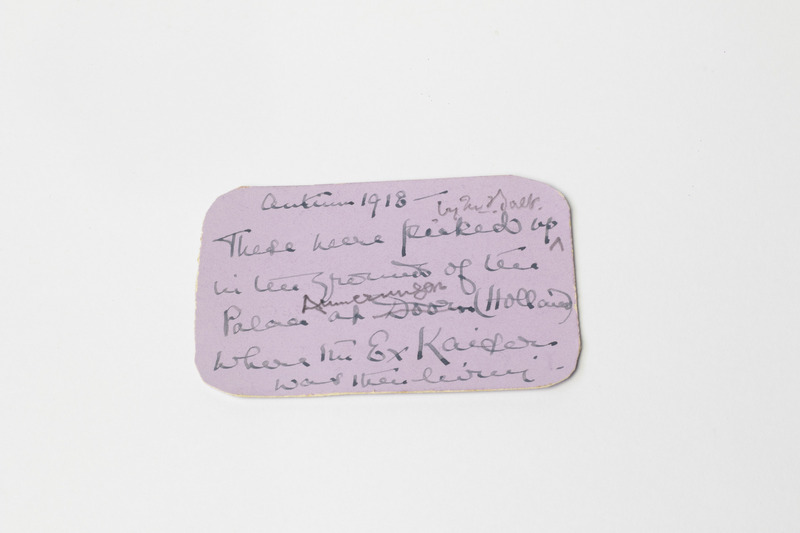 Autumn 1918 –
by Mr
These were picked up ^
in the grounds of the
Ammerungen
Palace at Doorn (Holland)
where the Ex Kaiser
was then living –